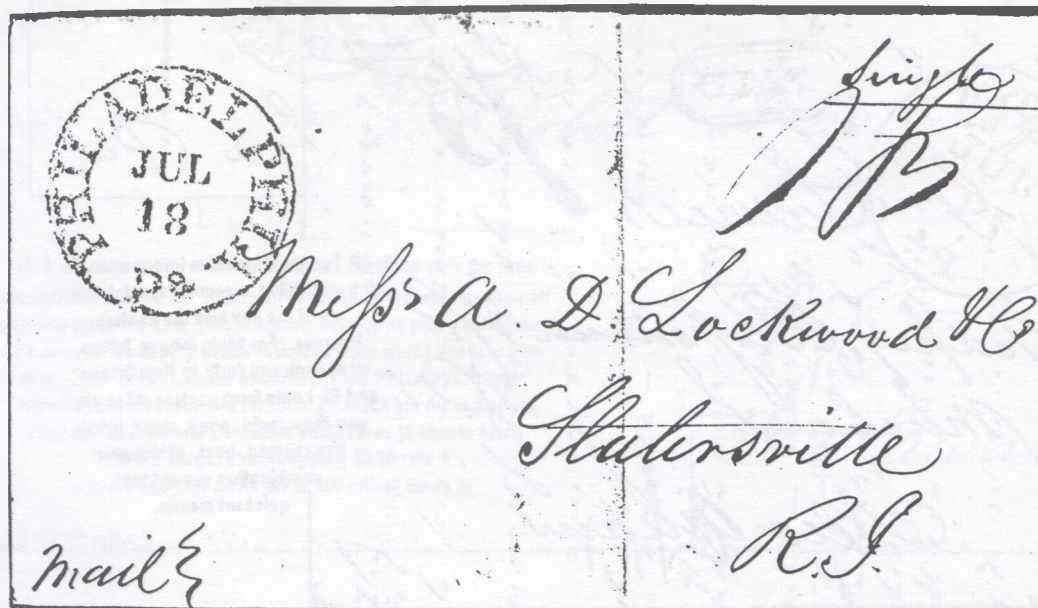 PHILADELPHIA Pa.
JUL
18
Single
Mess A. D. Lockwood & Co
Slatersville
R.I.
Mail